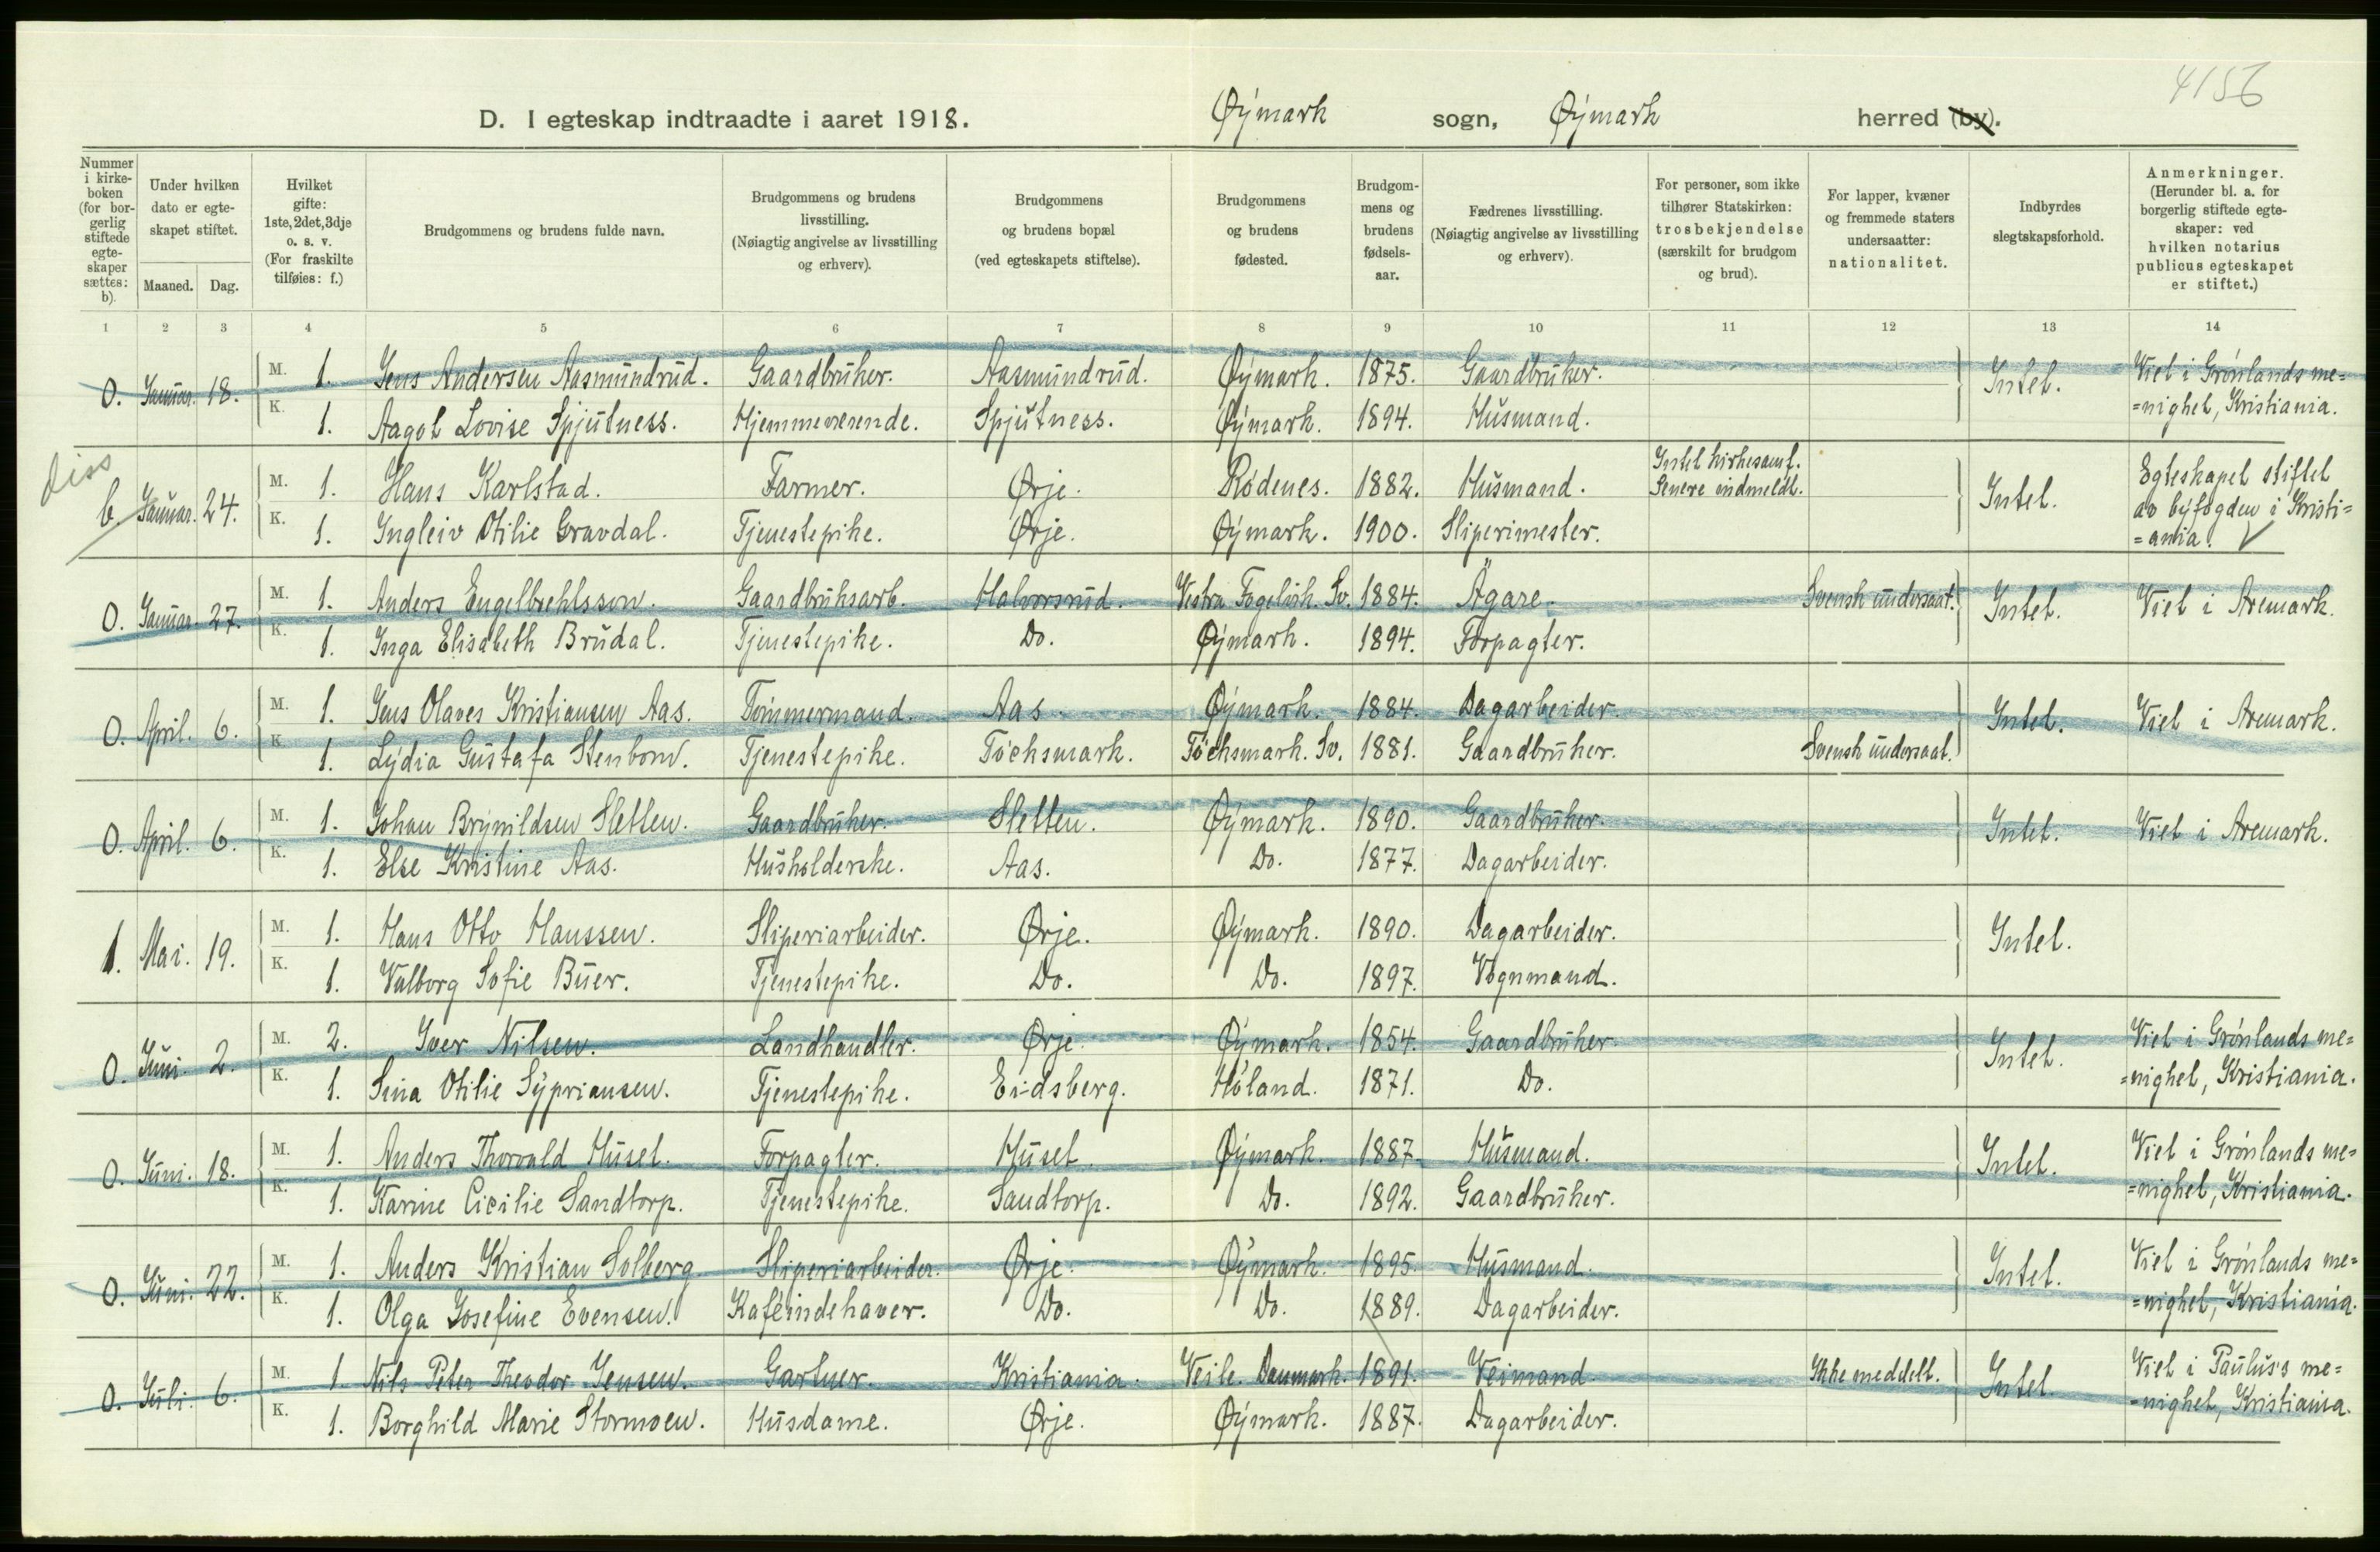 4156
D. I egteskap indtraadte i aaret 1918. Øymark sogn, Øymark herred (by).
Nummer i kirkeboken (for borgerlig stiftede egteskaper sættes: b).
Under hvilken dato er egteskapet stiftet.
Maaned. Dag.
Hvilket gifte: 1ste, 2det, 3dje o. s. v. (For fraskilte tilføies: f.)
Brudgommens og brudens fulde navn.
Brudgommens og brudens livsstilling. (Nøiagtig angivelse av livsstilling og erhverv).
Brudgommens og brudens bopæl (ved egteskapets stiftelse).
Brudgommens og brudens fødested.
Brudgommens og brudens fødselsaar.
Fædrenes livsstilling. (Nøiagtig angivelse av livsstilling og erhverv).
For personer, som ikke tilhører Statskirken: trosbekjendelse (særskilt for brudgom og brud).
For lapper, kvæner og fremmede staters undersaatter: nationalitet.
Indbyrdes slegtskapsforhold.
Anmerkninger. (Herunder bl. a. for borgerlig stiftede egteskaper: ved hvilken notarius publicus egteskapet er stiftet.)
1 2 3 4 5 6 7 8 9 10 11 12 13 14
0. Januar. 18. M. 1. Jens Andersen Aasmundrud. Gaardbruker. Aasmundrud. Øymark. 1875. Gaardbruker. Intet. Viet i Grønlands me=
K. 1. Aagot Lovise Spjutness. Hjemmeværende. Spjutness. Øymark. 1894. Husmand. =nighet, Kristiania.
diss
b. Januar. 24. M. 1. Hans Karlstad. Farmer. Ørje. Rødenes. 1882. Husmand. Intet kirkesamf. Senere indmeldt. Intet. Egteskapet stiftet
K. 1. Ingleiv Otilie Gravdal. Tjenestepike. Ørje. Øymark. 1900. Sliperimester. av byfogden i Kristi=
=ania. ✓
0. Januar. 27. M. 1. Anders Engelbrehtsson. Gaardbruksarb. Halvorsrud. Vestra Fogelvik. Sv. 1884. Ägare. Svensk undersaat. Intet. Viet i Aremark.
K. 1. Inga Elisabeth Brudal. Tjenestepike. Do. Øymark. 1894. Forpagter.
0. April. 6. M. 1. Jens Olaves Kristiansen Aas. Tømmermand. Aas. Øymark. 1884. Dagarbeider. Intet. Viet i Aremark.
K. 1. Lydia Gustafa Stenbom. Tjenestepike. Töchsmark. Töchsmark. Sv. 1881. Gaardbruker. Svensk undersaat.
0. April. 6. M. 1. Johan Brynildsen Sletten. Gaardbruker. Sletten. Øymark. 1890. Gaardbruker. Intet. Viet i Aremark.
K. 1. Else Kristine Aas. Husholderske. Aas. Do. 1877. Dagarbeider.
1. Mai. 19. M. 1. Hans Otto Hanssen. Sliperiarbeider. Ørje. Øymark. 1890. Dagarbeider. Intet.
K. 1. Valborg Sofie Buer. Tjenestepike. Do. Do. 1897. Vognmand.
0. Juni. 2. M. 2. Iver Nilsen. Landhandler. Ørje. Øymark. 1854. Gaardbruker. Intet. Viet i Grønlands me=
K. 1. Sina Otilie Sypriansen. Tjenestepike. Eidsberg. Høland. 1871. Do. =nighet, Kristiania.
0. Juni. 18. M. 1. Anders Thorvald Huset. Forpagter. Huset. Øymark. 1887. Husmand. Intet. Viet i Grønlands me=
K. 1. Karine Cicilie Sandtorp. Tjenestepike. Sandtorp. Do. 1892. Gaardbruker. =nighet, Kristiania.
0. Juni. 22. M. 1. Anders Kristian Solberg. Sliperiarbeider. Ørje. Øymark. 1895. Husmand. Intet. Viet i Grønlands me=
K. 1. Olga Josefine Evensen. Kaféindehaver. Do. Do. 1889. Dagarbeider. =nighet, Kristiania.
0. Juli. 6. M. 1. Nils Peter Theodor Jensen. Gartner. Kristiania. Veile. Danmark. 1891. Veimand. Ikke meddelt. Intet. Viet i Paulus's me=
K. 1. Borghild Marie Stormoen. Husdame. Ørje. Øymark. 1887. Dagarbeider. =nighet, Kristiania.